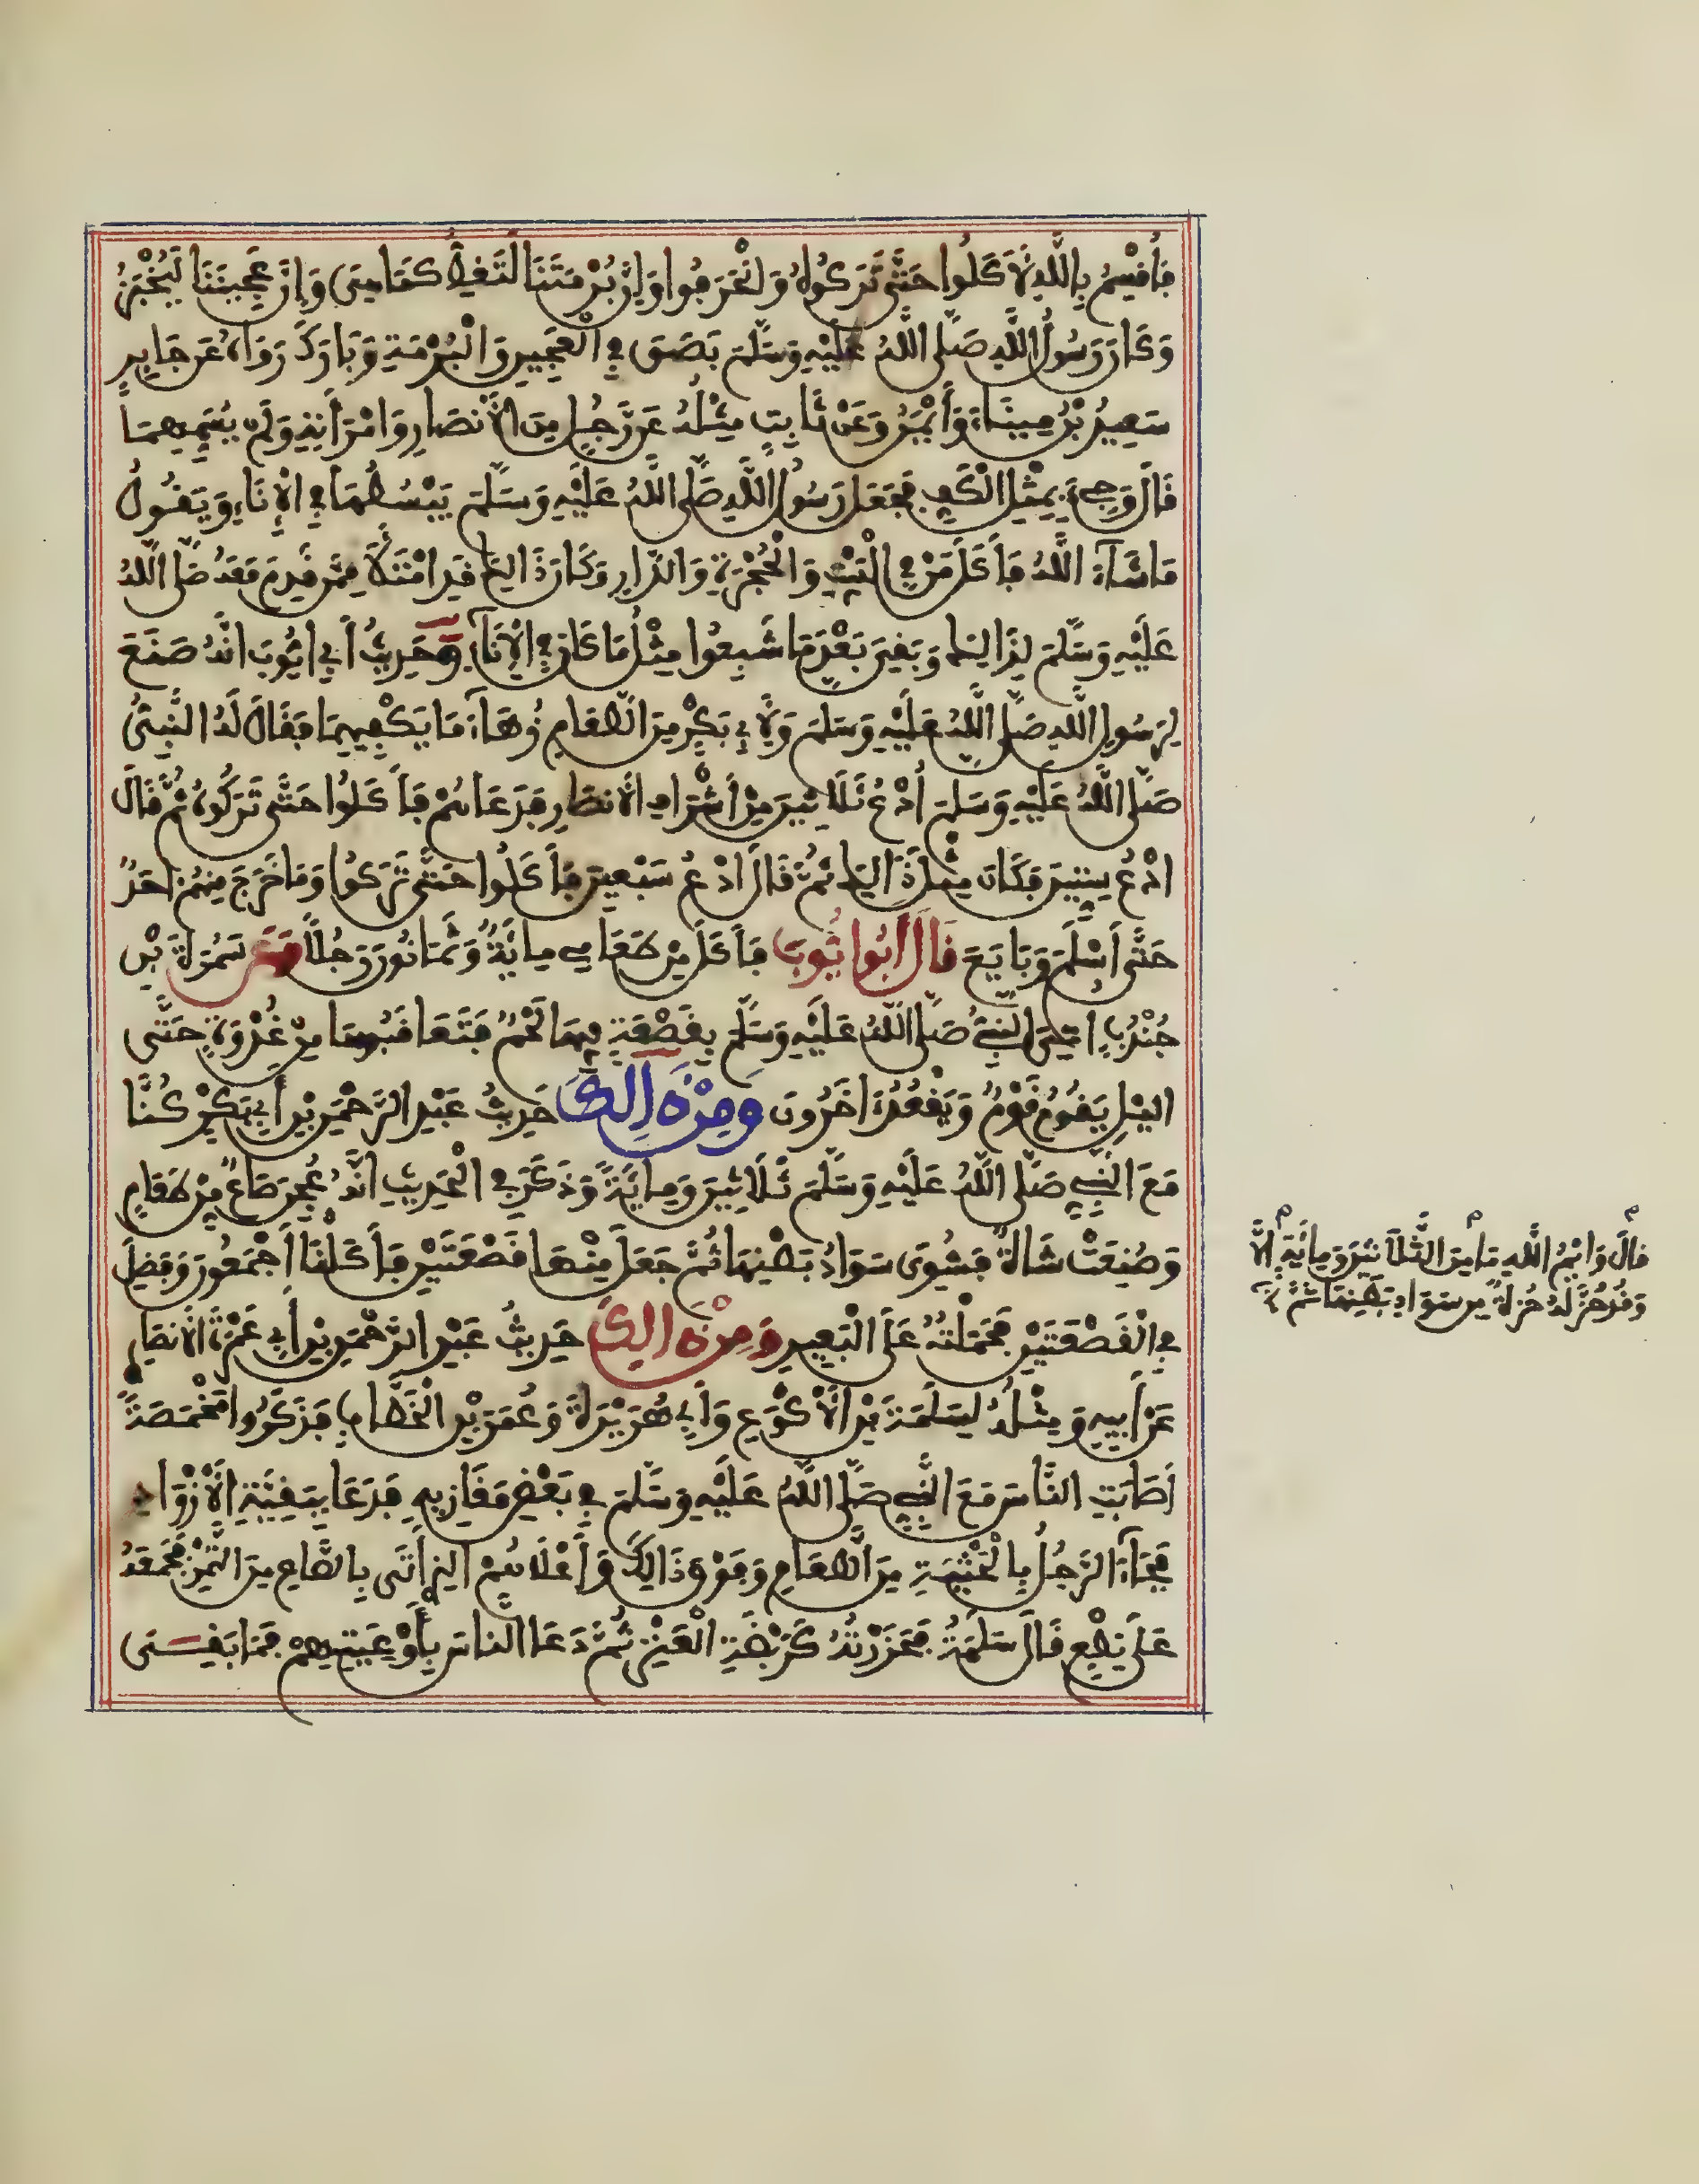 فَأُقْسِمُ بِاللَّهِ لَأَكَلُوا حَتَّى تَرَكُوهُ وَانْحَرَفُوا وَإِنَّ بُرْمَتَنَا لَتَغِطُّ كَمَا هِيَ وَإِنَّ عَجِينَنَا لَيُخْبَزُ
وَكَانَ رَسُولُ اللَّهِ صَلَّى اللَّهُ عَلَيْهِ وَسَلَّمَ بَصَقَ فِي الْعَجِينِ وَالْبُرْمَةِ وَبَارَكَ رَوَاهُ عَنْ جَابِرٍ
سَعِيدُ بْنُ مِينَاءَ وَأَيْمَنُ وَعَنْ ثَابِتٍ مِثْلُهُ عَنْ رَجُلٍ مِنَ الْأَنْصَارِ وَامْرَأَتِهِ وَلَمْ يُسَمِّهِمَا
قَالَ وَجِيءَ بِمِثْلِ الْكَفِّ فَجَعَلَ رَسُولُ اللَّهِ صَلَّى اللَّهُ عَلَيْهِ وَسَلَّمَ يَبْسُطُهَا فِي الْإِنَاءِ وَيَقُولُ
مَا شَاءَ اللَّهُ فَأَكَلَ مَنْ فِي الْبَيْتِ وَالْحُجْرَةِ وَالدَّارِ وَكَانَ ذَالِكَ قَدِ امْتَلَأَ مِمَّنْ قَدِمَ مَعَهُ صَلَّى اللَّهُ
عَلَيْهِ وَسَلَّمَ لِذَالِكَ وَبَقِيَ بَعْدَ مَا شَبِعُوا مِثْلُ مَا كَانَ فِي الْإِنَاءِ وَحَدِيثُ أَبِي أَيُّوبَ أَنَّهُ صَنَعَ
لِرَسُولِ اللَّهِ صَلَّى اللَّهُ عَلَيْهِ وَسَلَّمَ وَلِأَبِي بَكْرٍ مِنَ الطَّعَامِ زُهَاءَ مَا يَكْفِيهِمَا فَقَالَ لَهُ النَّبِيُّ
صَلَّى اللَّهُ عَلَيْهِ وَسَلَّمَ أُدْعُ ثَلَاثِينَ مِنْ أَشْرَافِ الْأَنْصَارِ فَدَعَاهُمْ فَأَكَلُوا حَتَّى تَرَكُوهُ ثُمَّ قَالَ
ادْعُ سِتِّينَ فَكَانَ مِثْلُ ذَالِكَ ثُمَّ قَالَ ادْعُ سَبْعِينَ فَأَكَلُوا حَتَّى تَرَكُوا وَمَا خَرَجَ مِنْهُمْ أَحَدٌ
حَتَّى أَسْلَمَ وَبَايَعَ قَالَ أَبُو أَيُّوبَ فَأَكَلَ مِنْ طَعَامِي مِائَةٌ وَثَمَانُونَ رَجُلًا وَعَنْ سَمُرَةَ بْنِ
جُنْدُبٍ أُتِيَ النَّبِيُّ صَلَّى اللَّهُ عَلَيْهِ وَسَلَّمَ بِقَصْعَةٍ فِيهَا لَحْمٌ فَتَعَاقَبُوهَا مِنْ غُدْوَةٍ حَتَّى
الَّيْلِ يَقُومُ قَوْمٌ وَيَقْعُدُ آخَرُونَ وَمِنْ ذَالِكَ حَدِيثُ عَبْدِ الرَّحْمَنِ بْنِ أَبِي بَكْرٍ كُنَّا
مَعَ النَّبِيِّ صَلَّى اللَّهُ عَلَيْهِ وَسَلَّمَ ثَلَاثِينَ وَمِائَةً وَذَكَرَ فِي الْحَدِيثِ أَنَّهُ عُجِنَ صَاعٌ مِنْ طَعَامٍ
وَصُنِعَتْ شَاةٌ فَشُوِيَ سَوَادُ بَطْنِهَا ثُمَّ جَعَلَ مِنْهَا قَصْعَتَيْنِ فَأَكَلْنَا أَجْمَعُونَ وَفَضِلَ
فِي الْقَصْعَتَيْنِ فَحَمَلْتُهُ عَلَى الْبَعِيرِ وَمِنْ ذَالِكَ حَدِيثُ عَبْدِ الرَّحْمَنِ بْنِ أَبِي عَمْرَةَ الْأَنْصَارِي
عَنْ أَبِيهِ وَمِثْلُهُ لِسَلَمَةَ بْنِ الْأَكْوَعِ وَأَبِي هُرَيْرَةَ وَعُمَرَ بْنِ الْخَطَّابِ فَذَكَرُوا مَخْمَصَةً
أَصَابَتِ النَّاسَ مَعَ النَّبِيِّ صَلَّى اللَّهُ عَلَيْهِ وَسَلَّمَ فِي بَعْضِ مَغَازِيهِ فَدَعَا بِبَقِيَّةِ الْأَزْوَادِ
فَجَاءَ الرَّجُلُ بِالْحَثْيَةِ مِنَ الطَّعَامِ وَفَوْقَ ذَالِكَ وَأَعْلَاهُمُ الَّذِي أَتَى بِالصَّاعِ مِنَ التَّمْرِ فَجَمَعَهُ
عَلَى نِطْعٍ قَالَ سَلَمَةُ فَحَزَرْتُهُ كَرَبْضَةِ الْعَنْزِ ثُمَّ دَعَا النَّاسَ بِأَوْعِيَتِهِمْ فَمَا بَقِيَ فِي
قَالَ وَايْمُ اللَّهِ مَا مِنَ الثَّلَاثِينَ وَمِائَةٍ إِلَّا
وَقَدْ حَزَّ لَهُ حُزَّةً مِنْ سَوَادِ بَطْنِهَا ثُمَّ